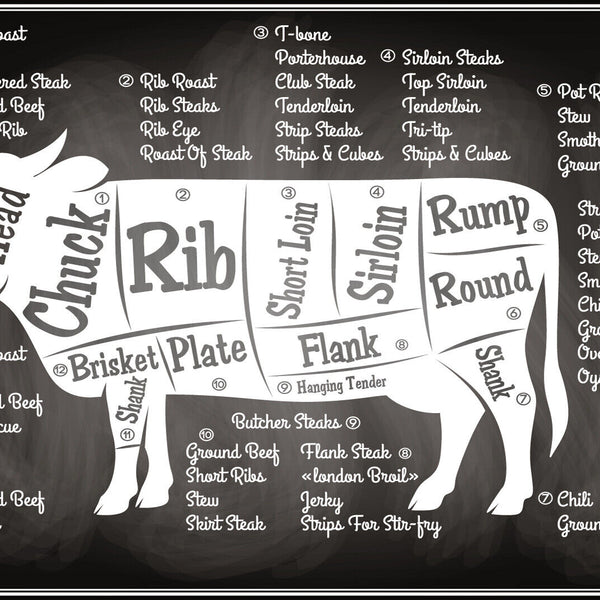 ③ T-bone
Porterhouse
Club Steak
Tenderloin
Strip Steaks
Strips & Cubes
④ Sirloin Steaks
Top Sirloin
Tenderloin
Tri-tip
Strips & Cubes
② Rib Roast
Rib Steaks
Rib Eye
Roast Of Steak
oast
ered Steak
d Beef
Rib
⑤ Pot R
Stew
Smoth
Groun
Str
Pot
Ste
Sm
Chi
Gro
Ove
Oy
Head
Chuck ①
② Rib
③ Short Loin
④ Sirloin
Rump ⑤
Round ⑥
⑫ Brisket
Plate ⑩
Flank ⑧
⑨ Hanging Tender
Shank ⑪
Shank ⑦
oast
d Beef
cue
d Beef
Butcher Steaks ⑨
⑩
Ground Beef
Short Ribs
Stew
Skirt Steak
Flank Steak ⑧
«london Broil»
Jerky
Strips For Stir-fry
⑦ Chili
Groun